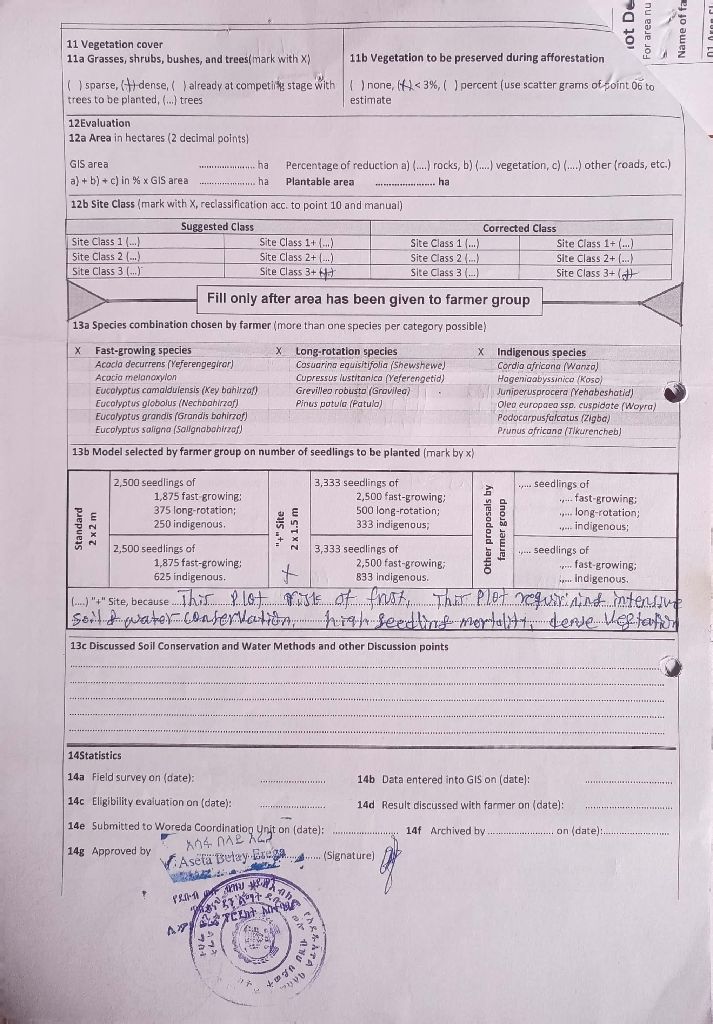 ot De
For area nu
Name of fa
11 Vegetation cover
11a Grasses, shrubs, bushes, and trees(mark with X)
( ) sparse, (X) dense, ( ) already at competing stage with
trees to be planted, (...) trees
11b Vegetation to be preserved during afforestation
( ) none, (X) < 3%, ( ) percent (use scatter grams of point 06 to
estimate
12Evaluation
12a Area in hectares (2 decimal points)
GIS area ...................... ha Percentage of reduction a) (....) rocks, b) (....) vegetation, c) (....) other (roads, etc.)
a) + b) + c) in % x GIS area ...................... ha Plantable area ...................... ha
12b Site Class (mark with X, reclassification acc. to point 10 and manual)
Suggested Class Corrected Class
Site Class 1 (...) Site Class 1+ (...) Site Class 1 (...) Site Class 1+ (...)
Site Class 2 (...) Site Class 2+ (...) Site Class 2 (...) Site Class 2+ (...)
Site Class 3 (...) Site Class 3+ (X) Site Class 3 (...) Site Class 3+ (X)
Fill only after area has been given to farmer group
13a Species combination chosen by farmer (more than one species per category possible)
X Fast-growing species X Long-rotation species X Indigenous species
Acacia decurrens (Yeferengegirar) Casuarina equisitifolia (Shewshewe) Cordia africana (Wanza)
Acacia melanoxylon Cupressus lustitanica (Yeferengetid) Hageniaabyssinica (Koso)
Eucalyptus camaldulensis (Key bahirzaf) Grevillea robusta (Gravilea) Juniperusprocera (Yehabeshatid)
Eucalyptus globolus (Nechbahirzaf) Pinus patula (Patula) Olea europaea ssp. cuspidate (Woyra)
Eucalyptus grandis (Grandis bahirzaf) Podocarpusfalcatus (Zigba)
Eucalyptus saligna (Salignabahirzaf) Prunus africana (Tikurencheb)
13b Model selected by farmer group on number of seedlings to be planted (mark by x)
Standard
2 x 2 m
2,500 seedlings of
1,875 fast-growing;
375 long-rotation;
250 indigenous.
2,500 seedlings of
1,875 fast-growing;
625 indigenous.
"+" Site
2 x 1.5 m
X
3,333 seedlings of
2,500 fast-growing;
500 long-rotation;
333 indigenous;
3,333 seedlings of
2,500 fast-growing;
833 indigenous.
Other proposals by
farmer group
.,... seedlings of
.,... fast-growing;
.,... long-rotation;
.,... indigenous;
.,... seedlings of
.,... fast-growing;
.,... indigenous.
(....) "+" Site, because This Plot risk of frost, This Plot requirining intensive
soil & water conservation, high seedling mortality, dense Vegetation
13c Discussed Soil Conservation and Water Methods and other Discussion points
14Statistics
14a Field survey on (date): ......................
14b Data entered into GIS on (date): ......................
14c Eligibility evaluation on (date): ......................
14d Result discussed with farmer on (date): ......................
14e Submitted to Woreda Coordination Unit on (date): ......................
14f Archived by ...................... on (date):......................
14g Approved by Asefa Belay Erega (Signature)